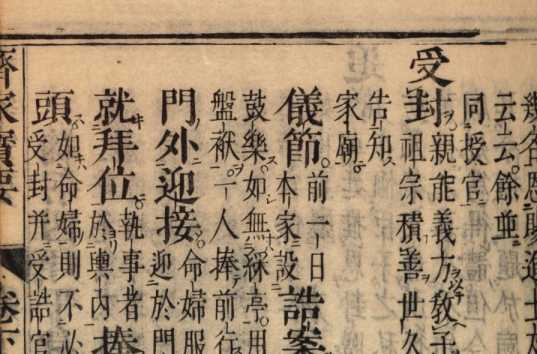 幾名恩賜進士
云云餘並
同授官
受封親能義方教子
祖宗積善世久
告知
家廟
儀節前一日
本家設誥案
鼓樂如無綵亭用
盤袱一人捧前行
門外迎接命婦服
迎於門
就拜位執事者
於輿内捧
頭如命婦則不必
受封并受誥官
齊家寶要 卷下